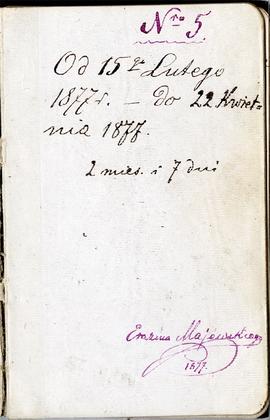 Nro 5
Od 15go Lutego
1877 r. – do 22 Kwiet=
nia 1877.
2 mies. i 7 dni
Erazma Majewskiego
1877.